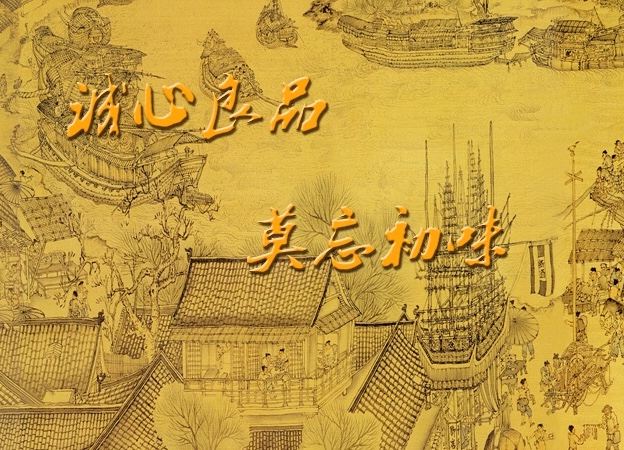 诚心良品
莫忘初味